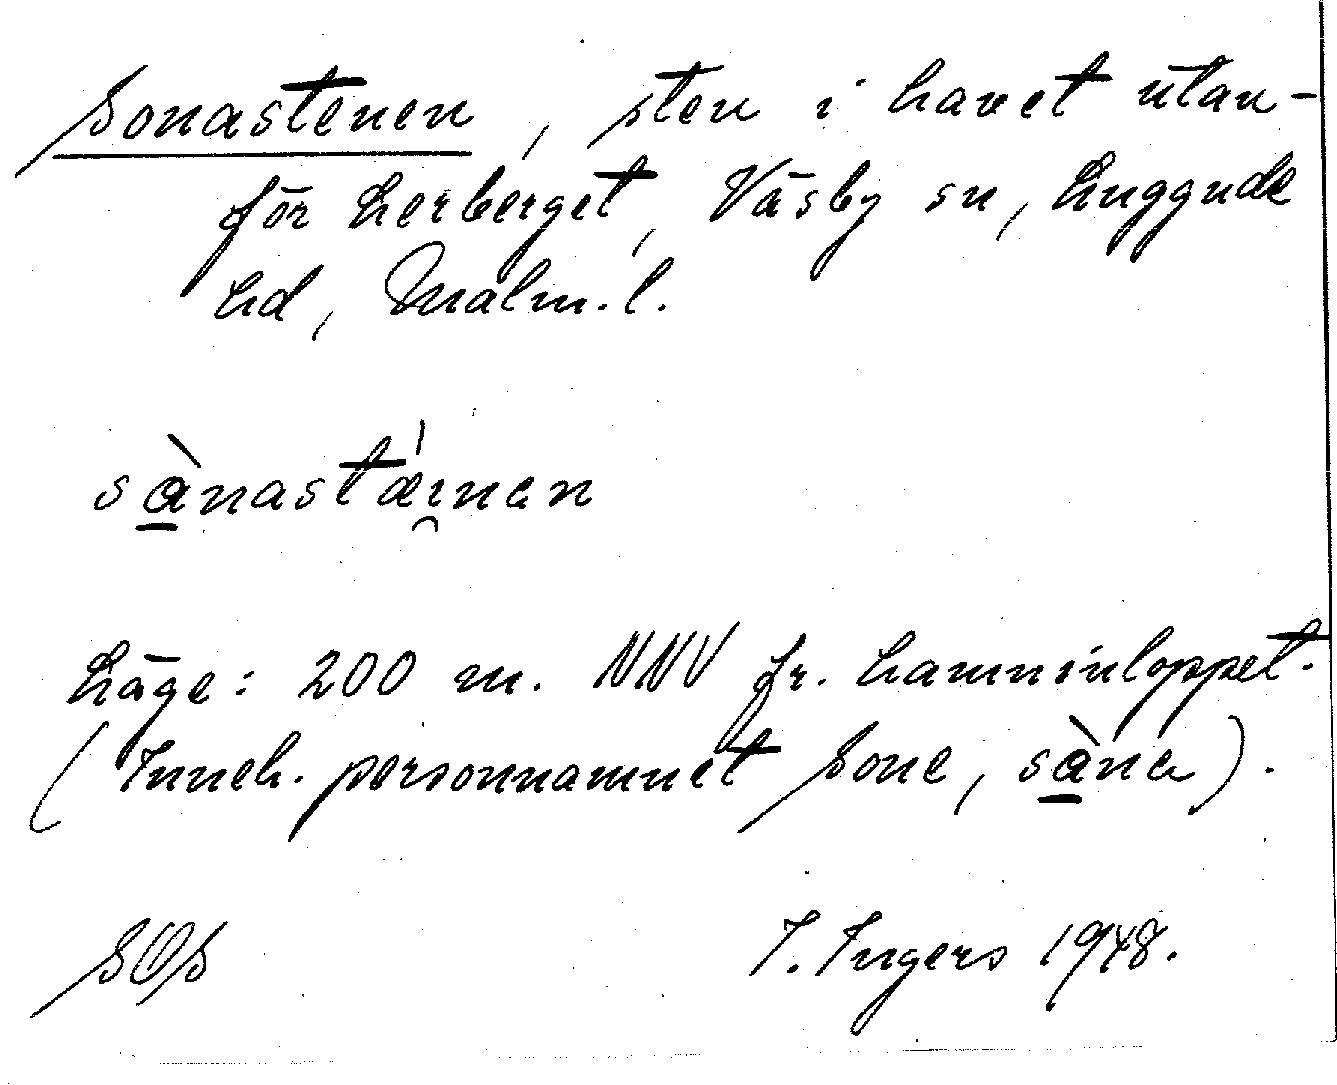 Sonastenen, sten i havet utan-
för Lerberget, Väsby sn, Luggude
hd, Malm. l.
sànastæ̍ɪ̯nən
Läge: 200 m. NNV fr. hamninloppet.
(Inneh. personnamnet Sone, sànə).
SOS I. Ingers 1948.